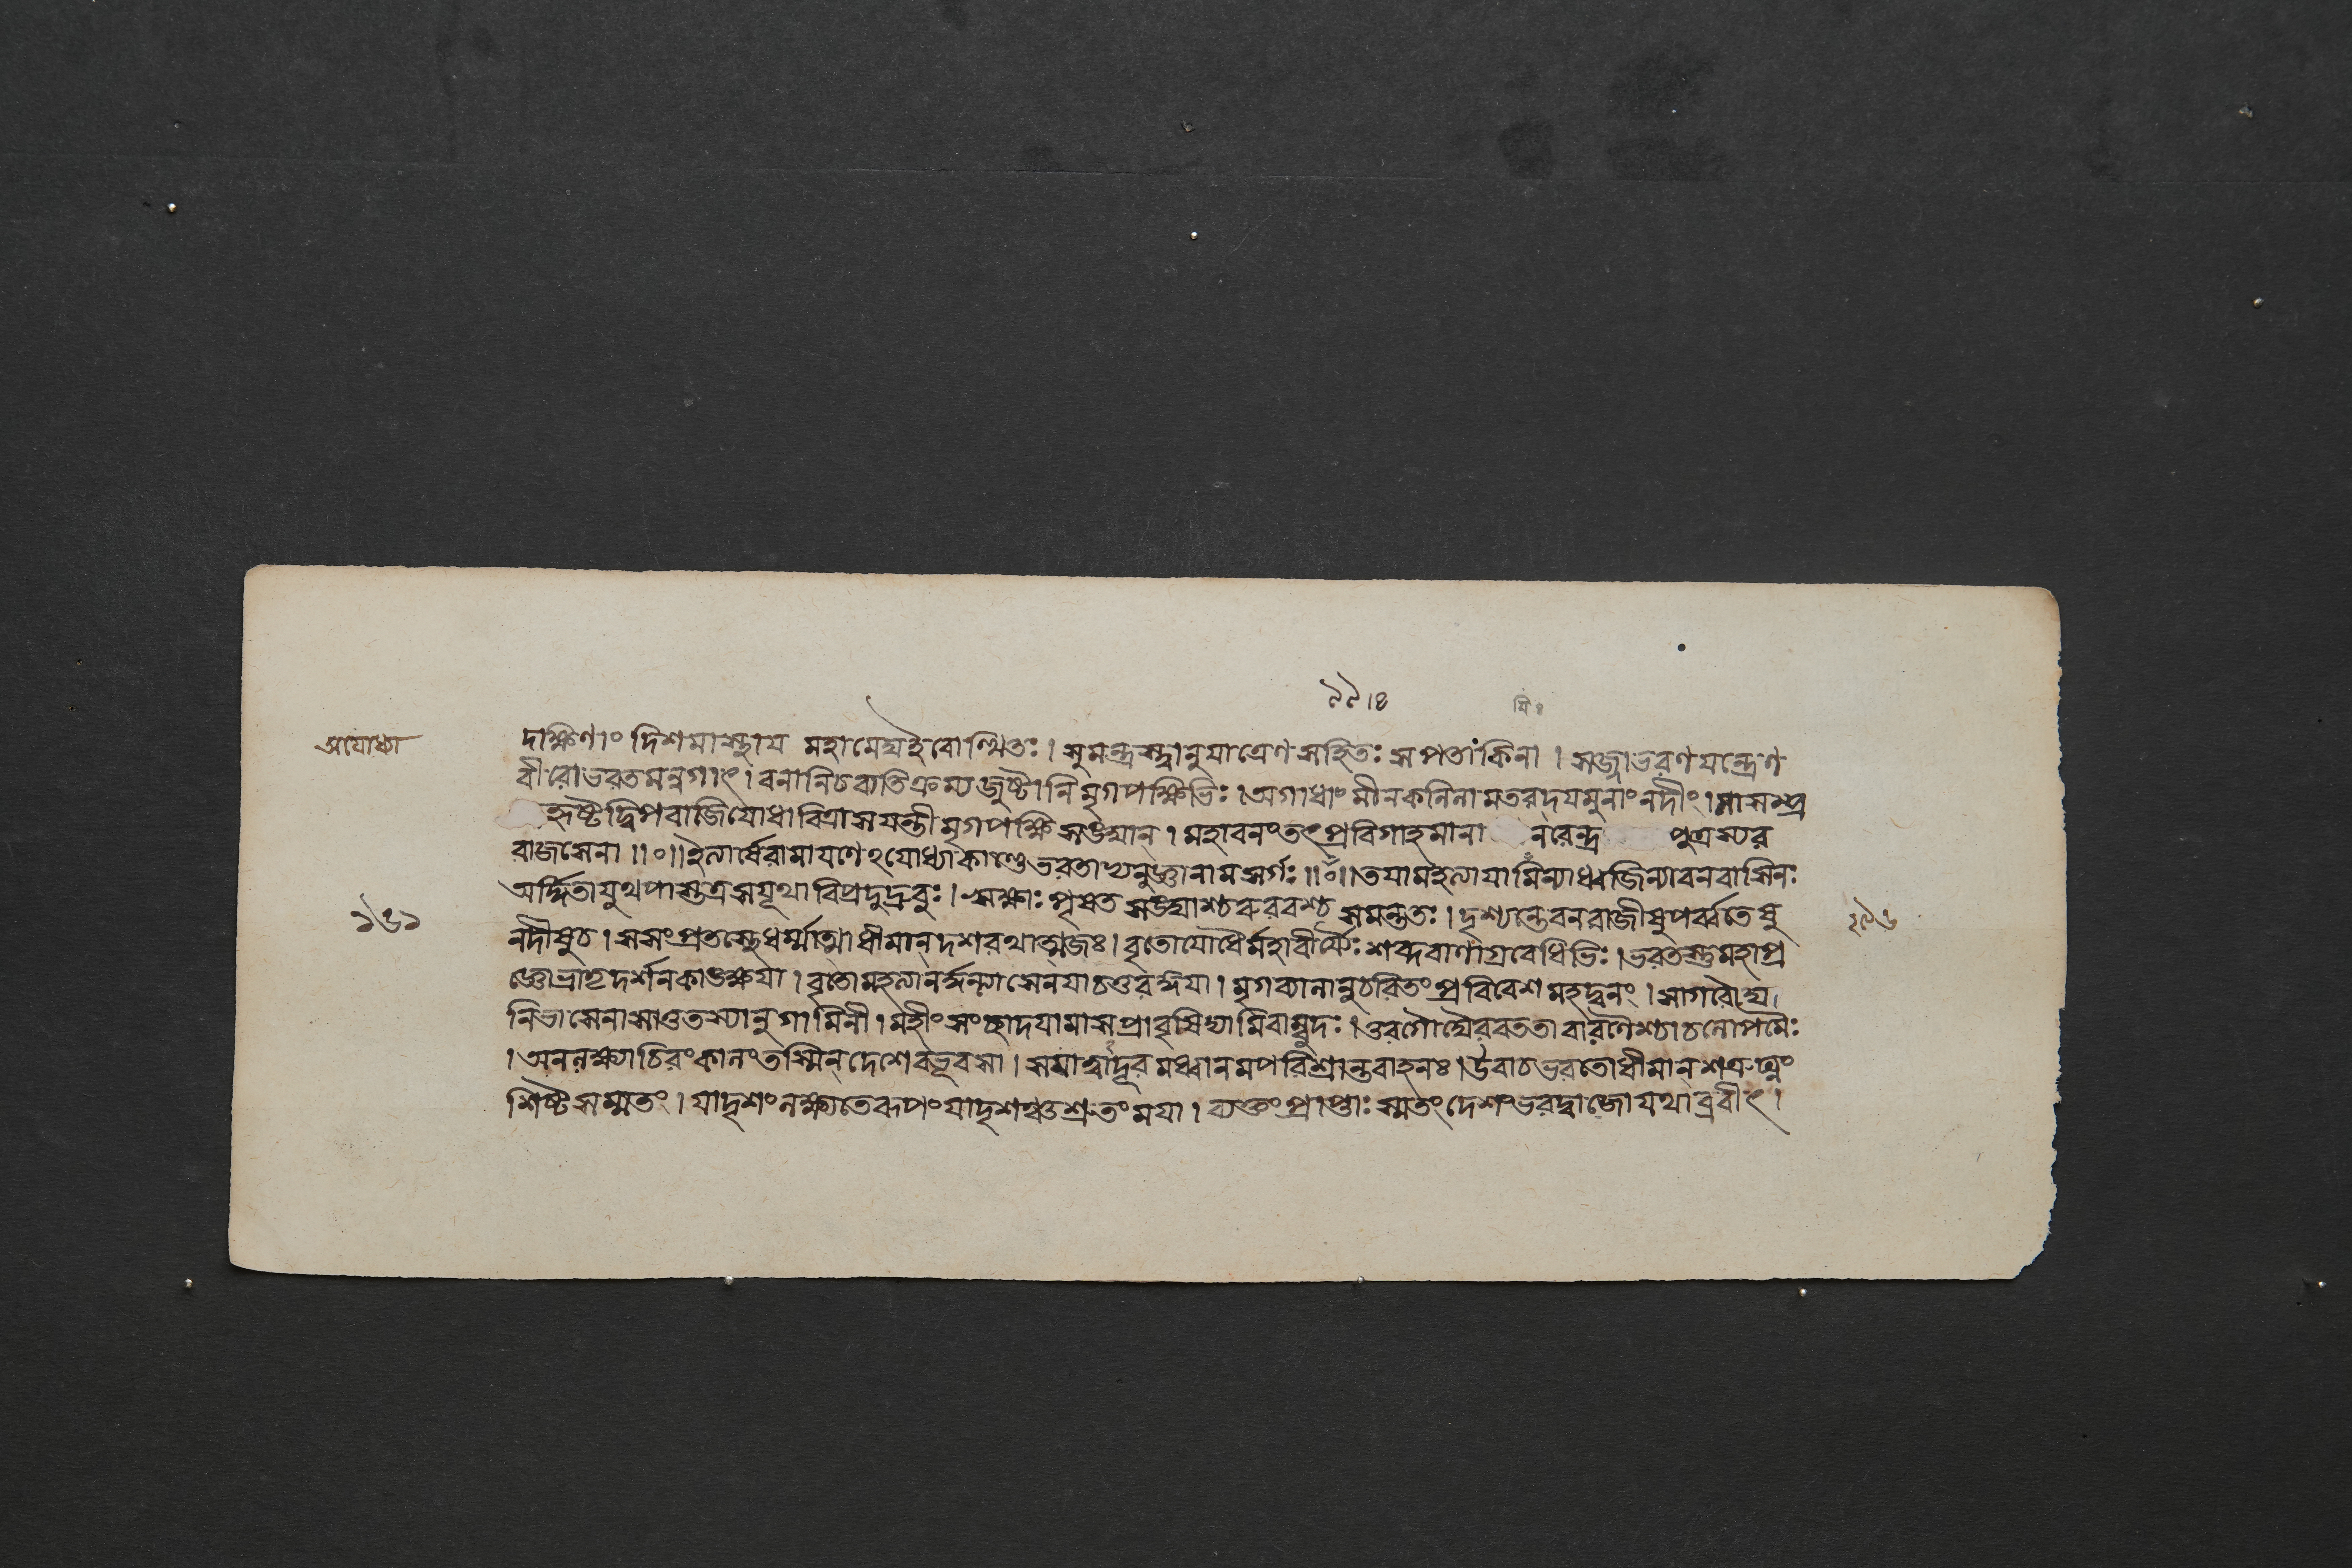 ৯৯।৪
যি॰
অযোধ্যা
দক্ষিণাং দিশমাস্থায মহামেঘইবোত্থিতঃ। সুমন্ত্রস্ত্বানুযাত্রেণ সহিতঃ সপতাকিনা। সজ্জাভরণযন্ত্রেণ
বীরোভরতমন্বগাৎ। বনানিচব্যতিক্রম্যজুষ্টানি মৃগপক্ষিভিঃ। অগাধাং মীনকলিলামতরদযমুনাং নদীং। সাসম্প্র
হৃষ্টদ্বিপবাজিযোধা বিত্রাসযন্তী মৃগপক্ষিসঙ্ঘান্। মহাবনং তৎপ্রবিগাহমানা নরেন্দ্র পুত্রস্যর
রাজসেনা॥০॥ইত্যার্ষেরামাযণেঽযোধ্যাকাণ্ডেভরতাভ্যনুজ্ঞানামসর্গঃ॥০॥তযামহত্যাযামিন্যাধ্বজিন্যাবনবাসিনঃ
অর্দ্দিতাযুথপাস্তত্রসযূথাবিপ্রদুদ্রুবুঃ। ঋক্ষাঃ পৃষতসঙ্ঘাশ্চরুরবশ্চ সমন্ততঃ। দৃশ্যন্তেবনরাজীষুপর্ব্বতেষু
নদীষুচ। সসংপ্রতস্থেধর্ম্মাত্মাধীমান্দশরথাত্মজঃ। বৃতোযোধৈর্মহাবীর্য্যৈঃ শব্দবাণাগ্রবেধিভিঃ। ভরতস্তুমহাপ্র
জ্ঞোভ্রাতৃদর্শনকাঙ্ক্ষযা। বৃতোমহত্যানর্দ্দন্ত্যাসেনযাচতুরঙ্গিযা। মৃগব্যালানুচরিতংপ্রবিবেশমহদ্বনং। সাগরৌঘ
নিভাসেনাসাতুতস্যানুগামিনী। মহীংসংছাদযামাসপ্রাবৃষিদ্যামিবাম্বুদঃ। তুরগৌঘৈরবততা বারণৈশ্চাচলোপমৈঃ
। অনলক্ষ্যাচিরংকালংতস্মিন্ দেশেবভূবসা। সযাত্বাদূরমধ্বানমপরিশ্রান্তবাহনঃ। উবাচভরতোধীমান্ শত্রুঘ্নং
শিষ্টসম্মতং। যাদৃশংলক্ষ্যতেরূপংযাদৃশঞ্চশ্রুতংমযা। ব্যক্তংপ্রাপ্তাঃ স্মতংদেশংভরদ্বাজোযথাব্রবীৎ।
১৬১
২৯৬